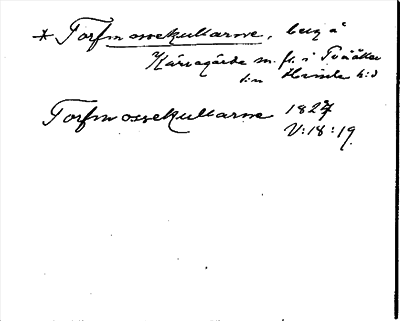 * Torfmossekullarne, beg å
Kärragärde m. fl. i Tvååker
sn Himle h:d
Torfmossekullarne 1827
V:18:19